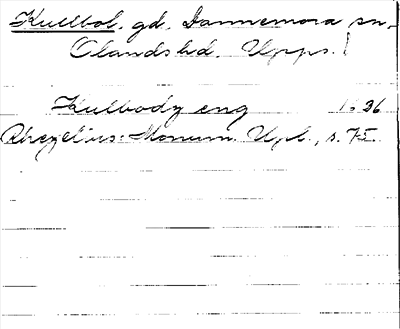 Kullbol. gd, Dannemora sn,
Olands hd. Upps. l
Kulbody eng 1636
Rhezelius: Monum. Upl., s. 75.